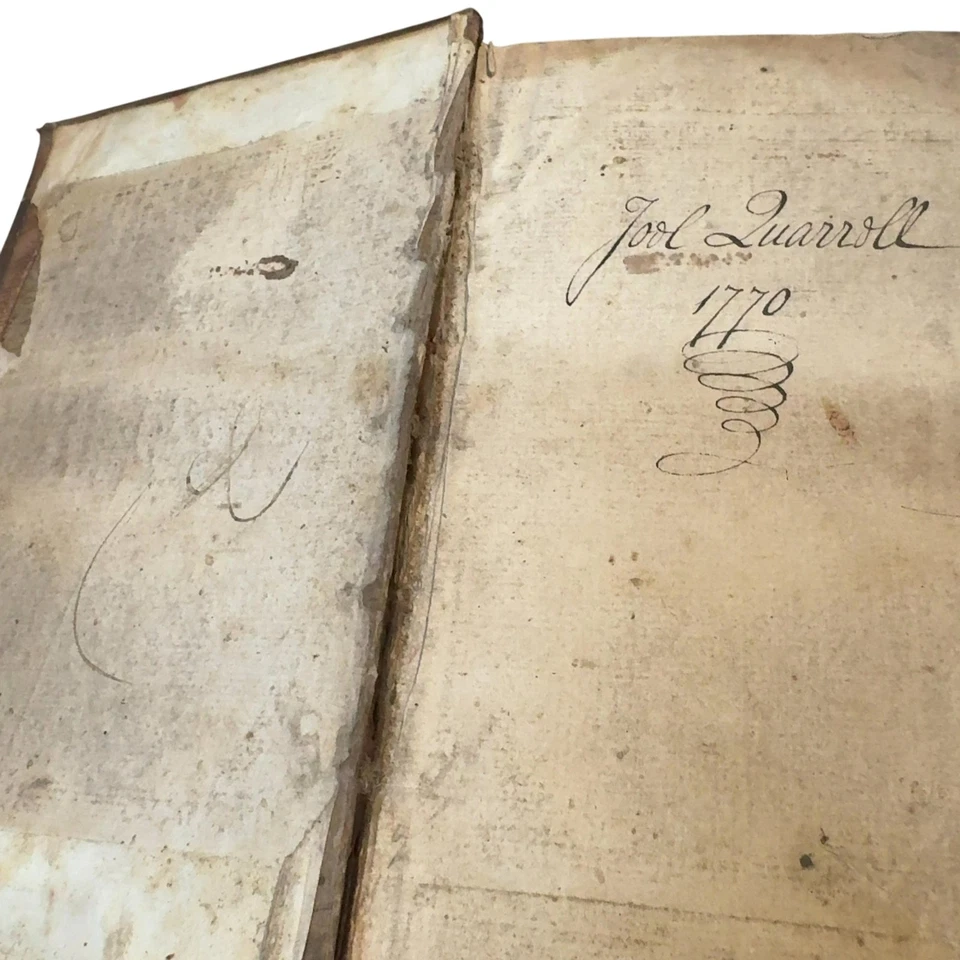 Joel Quarrell
1770